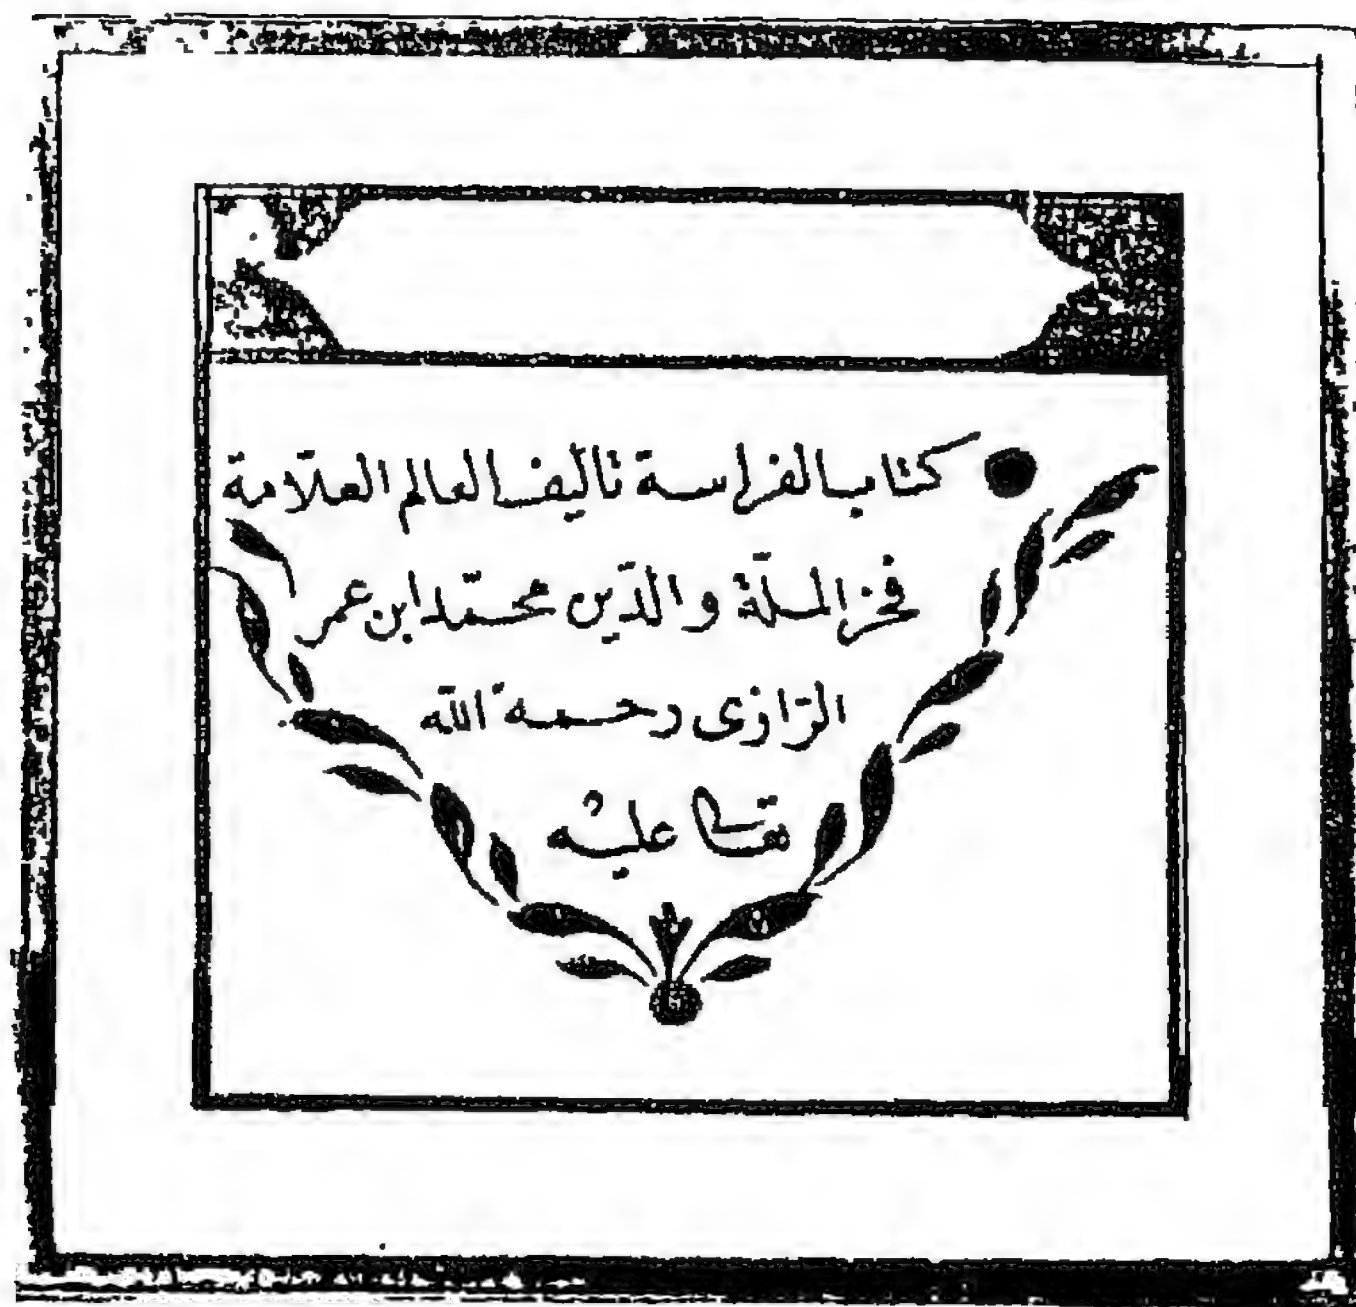 كتاب الفراسة تأليف العالم العلامة
فخر الملّة والدّين محمّد ابن عمر
الرّازى رحمة اللّه
تعالى عليه